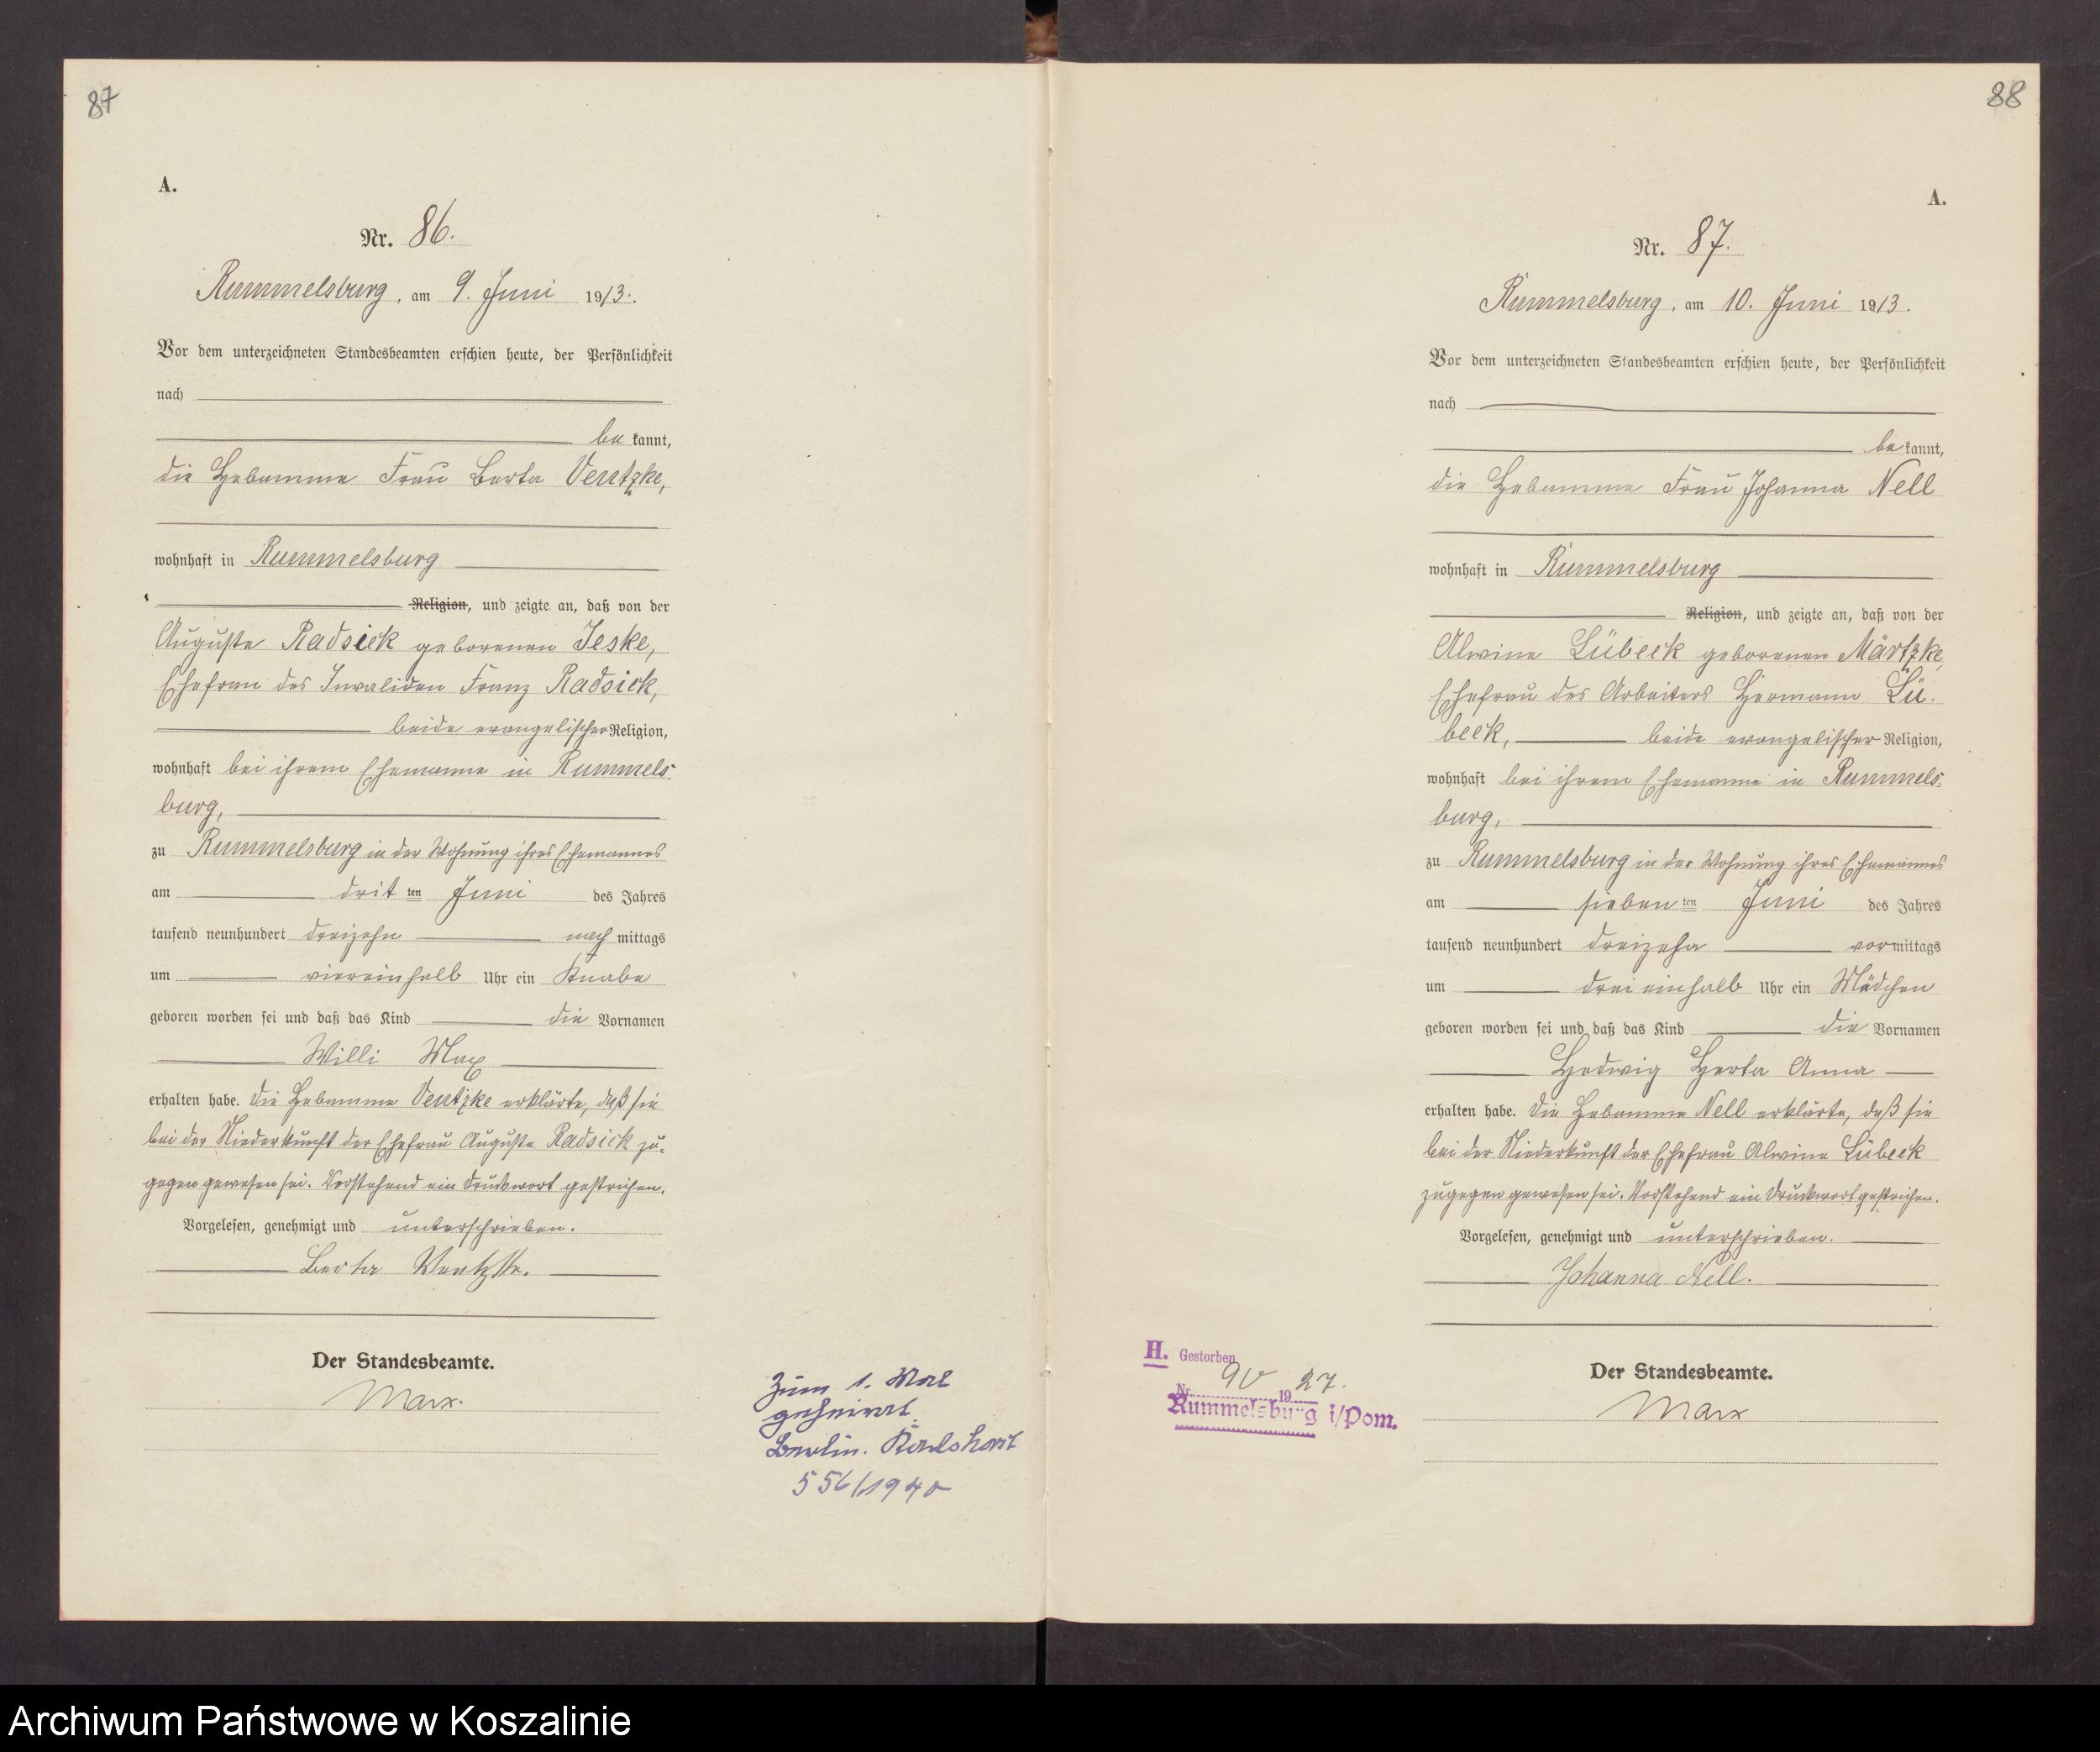 87
A.
Nr. 86.
Rummelsburg, am 9. Juni 1913.
Vor dem unterzeichneten Standesbeamten erschien heute, der Persönlichkeit
nach
be kannt,
die Hebamme Frau Berta Ventzke,
wohnhaft in Rummelsburg
Religion, und zeigte an, daß von der
Auguste Radsiek geborenen Jeske,
Ehefrau des Invaliden Franz Radsiek,
beide evangelischer Religion,
wohnhaft bei ihrem Ehemanne in Rummels-
burg,
zu Rummelsburg in der Wohnung ihres Ehemannes
am drit ten Juni des Jahres
tausend neunhundert dreizehn nach mittags
um viereinhalb Uhr ein Knabe
geboren worden sei und daß das Kind die Vornamen
Willi Max
erhalten habe. Die Hebamme Ventzke erklärte, daß sie
bei der Niederkunft der Ehefrau Auguste Radsiek zu-
gegen gewesen sei. Vorstehend ein Druckwort gestrichen.
Vorgelesen, genehmigt und unterschrieben.
Berta Ventzke.
Der Standesbeamte.
Marx.
Zum 1. Mal
geheirat.
Berlin. Karlshorst
556/1940
88
A.
Nr. 87.
Rummelsburg, am 10. Juni 1913.
Vor dem unterzeichneten Standesbeamten erschien heute, der Persönlichkeit
nach
be kannt,
die Hebamme Frau Johanna Nell
wohnhaft in Rummelsburg
Religion, und zeigte an, daß von der
Alwine Lübeck geborenen Märtzke,
Ehefrau des Arbeiters Hermann Lü-
beck, beide evangelischer Religion,
wohnhaft bei ihrem Ehemanne in Rummels-
burg,
zu Rummelsburg in der Wohnung ihres Ehemannes
am sieben ten Juni des Jahres
tausend neunhundert dreizehn vormittags
um dreieinhalb Uhr ein Mädchen
geboren worden sei und daß das Kind die Vornamen
Hedwig Herta Anna
erhalten habe. Die Hebamme Nell erklärte, daß sie
bei der Niederkunft der Ehefrau Alwine Lübeck
zugegen gewesen sei. Vorstehend ein Druckwort gestrichen.
Vorgelesen, genehmigt und unterschrieben.
Johanna Nell.
H. Gestorben
Nr. 90 1927.
Rummelsburg i/Pom.
Der Standesbeamte.
Marx
Archiwum Państwowe w Koszalinie